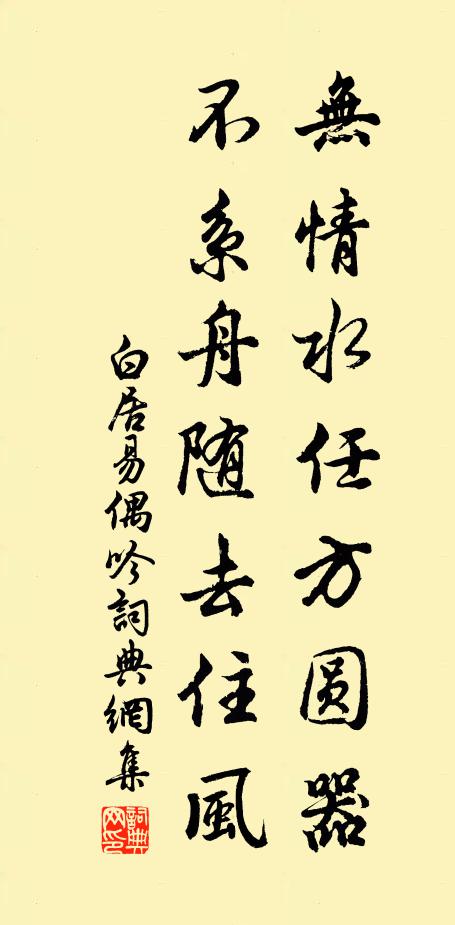 無情水任方圆器
不系舟随去住風
白居易偶吟詞典網集
詞典網印